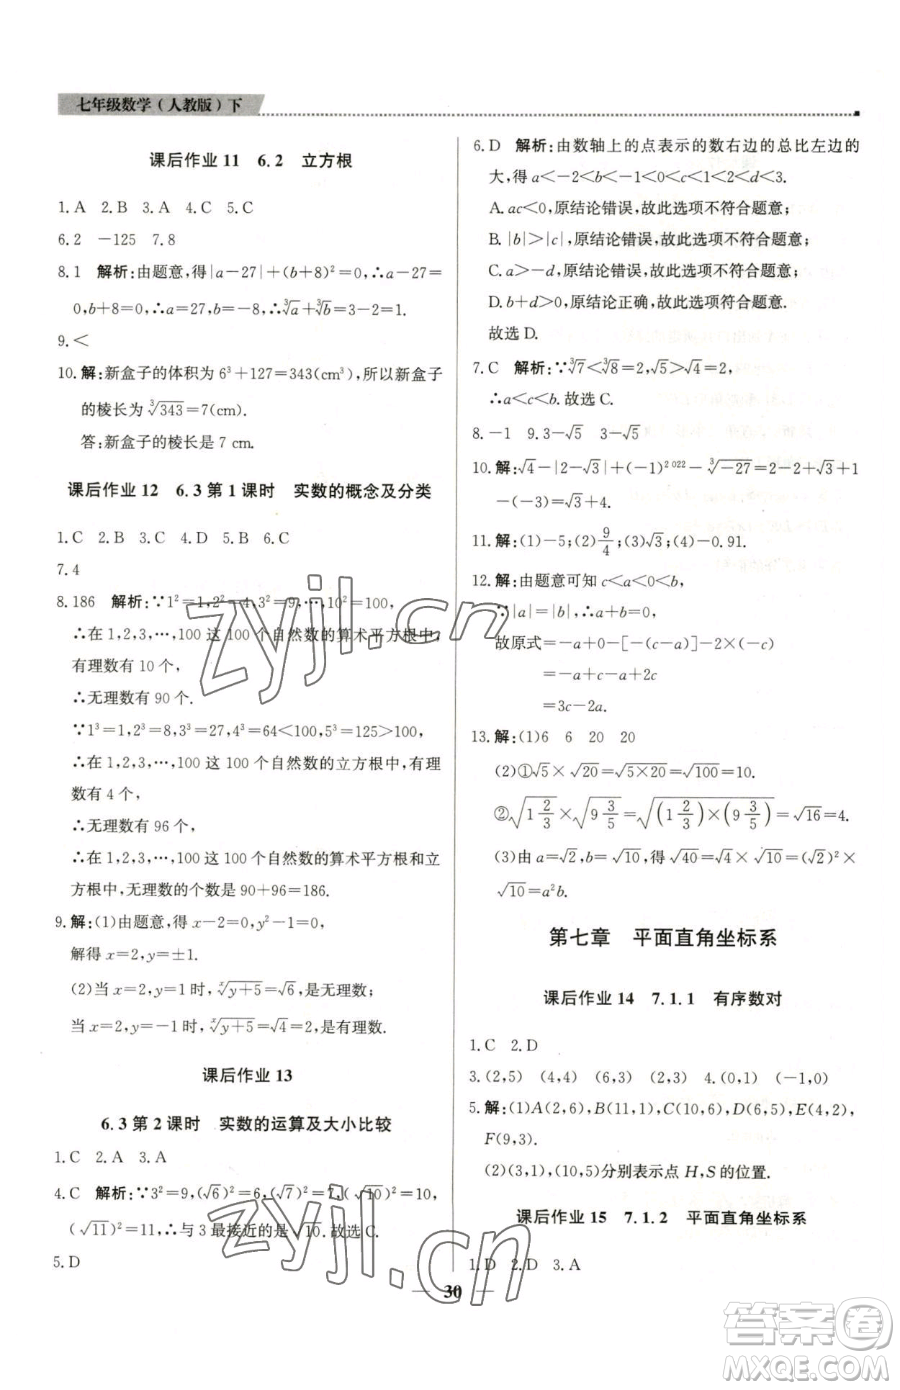 七年级数学(人教版)下
课后作业 11 6.2 立方根
1.A 2.B 3.A 4.C 5.C
6.2 -125 7.8
8.1 解析:由题意,得|a-27|+(b+8)²=0,∴a-27=
0,b+8=0,∴a=27,b=-8,∴∛a+∛b=3-2=1.
9.<
10.解:新盒子的体积为 6³+127=343(cm³),所以新盒子
的棱长为∛343=7(cm).
答:新盒子的棱长是 7 cm.
课后作业 12 6.3 第 1 课时 实数的概念及分类
1.C 2.B 3.C 4.D 5.B 6.C
7.4
8.186 解析:∵1²=1,2²=4,3²=9,…,10²=100,
∴在 1,2,3,…,100 这 100 个自然数的算术平方根中,
有理数有 10 个,
∴无理数有 90 个.
∵1³=1,2³=8,3³=27,4³=64<100,5³=125>100,
∴在 1,2,3,…,100 这 100 个自然数的立方根中,有理
数有 4 个,
∴无理数有 96 个,
∴在 100 这 100 个自然数的算术平方根和立
方根中,无理数的个数有 90+96=186.
9.解:(1)由题意,得 x-2=0,y²-1=0,
解得 x=2,y=±1.
(2)当 x=2,y=1 时,ˣ√(y+5)=√6,是无理数;
当 x=2,y=-1 时,ˣ√(y+5)=√4=2,是有理数.
课后作业 13
6.3 第 2 课时 实数的运算及大小比较
1.C 2.A 3.A
4.C 解析:∵3²=9,(√6)²=6,(√7)²=7,(√10)²=10,
(√11)²=11,∴与 3 最接近的是√10.故选 C.
5.D
6.D 解析:由数轴上的点表示的数右边的总比左边的
大,得 a<-2<b<-1<0<c<1<2<d<3.
A.ac<0,原结论错误,故此选项不符合题意;
B.|b|>|c|,原结论错误,故此选项不符合题意;
C.a>-d,原结论错误,故此选项不符合题意;
D.b+d>0,原结论正确,故此选项符合题意.
故选 D.
7.C 解析:∵∛7<∛8=2,√5>√4=2,
∴a<c<b.故选 C.
8.-1 9.3-√5 3-√5
10.解:√4-|2-√3|+(-1)²⁰²²-∛-27=2-2+√3+1
-(-3)=√3+4.
11.解:(1)-5;(2)9/4;(3)√3;(4)-0.91.
12.解:由题意可知 c<a<0,b>0,
∵|a|=|b|,∴a+b=0,
故原式=-a+0-[-(-c-a)]-2(-c)
=-a+0-c-a+2c
=3c-2a.
13.解:(1)6 6 20 20
(2)①√5×√20=√(5×20)=√100=10.
②√(1 2/3)×√(9 3/5)=√((1 2/3)×(9 3/5))=√16=4.
(3)由 a=√2,b=√10,得√40=√2×√2×√10=(√2)²×
√10=a²b.
第七章 平面直角坐标系
课后作业 14 7.1.1 有序数对
1.C 2.D
3.(2,5) (4,4) (6,2) 4.(0,1) (-1,0)
5.解:(1)A(2,6),B(1,4),C(3,4),D(6,5),E(4,2),
F(9,3).
(2)(3,1),(10,5)分别表示点 H,S 的位置.
课后作业 15 7.1.2 平面直角坐标系
1.D 2.D 3.A
30
zyjl.cn
zyjl.cn
答案圈
MXQE.COM